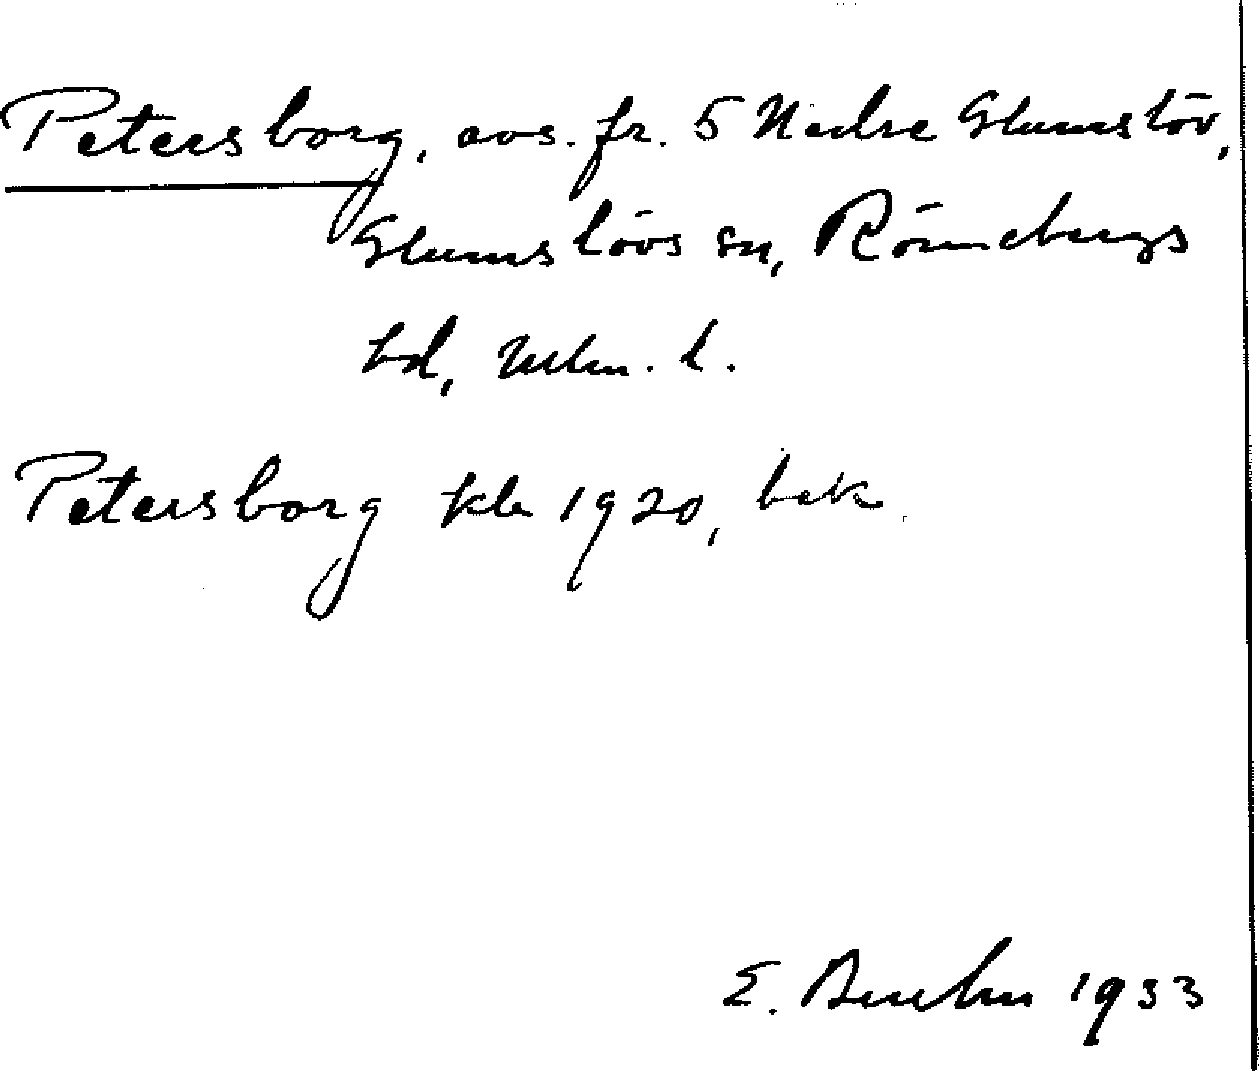 Petersborg, avs. fr. 5 Nedre Glumslöv,
Glumslövs sn, Rönnebergs
hd, Mlm. l.
Petersborg kb 1920, bek.
E. 1933